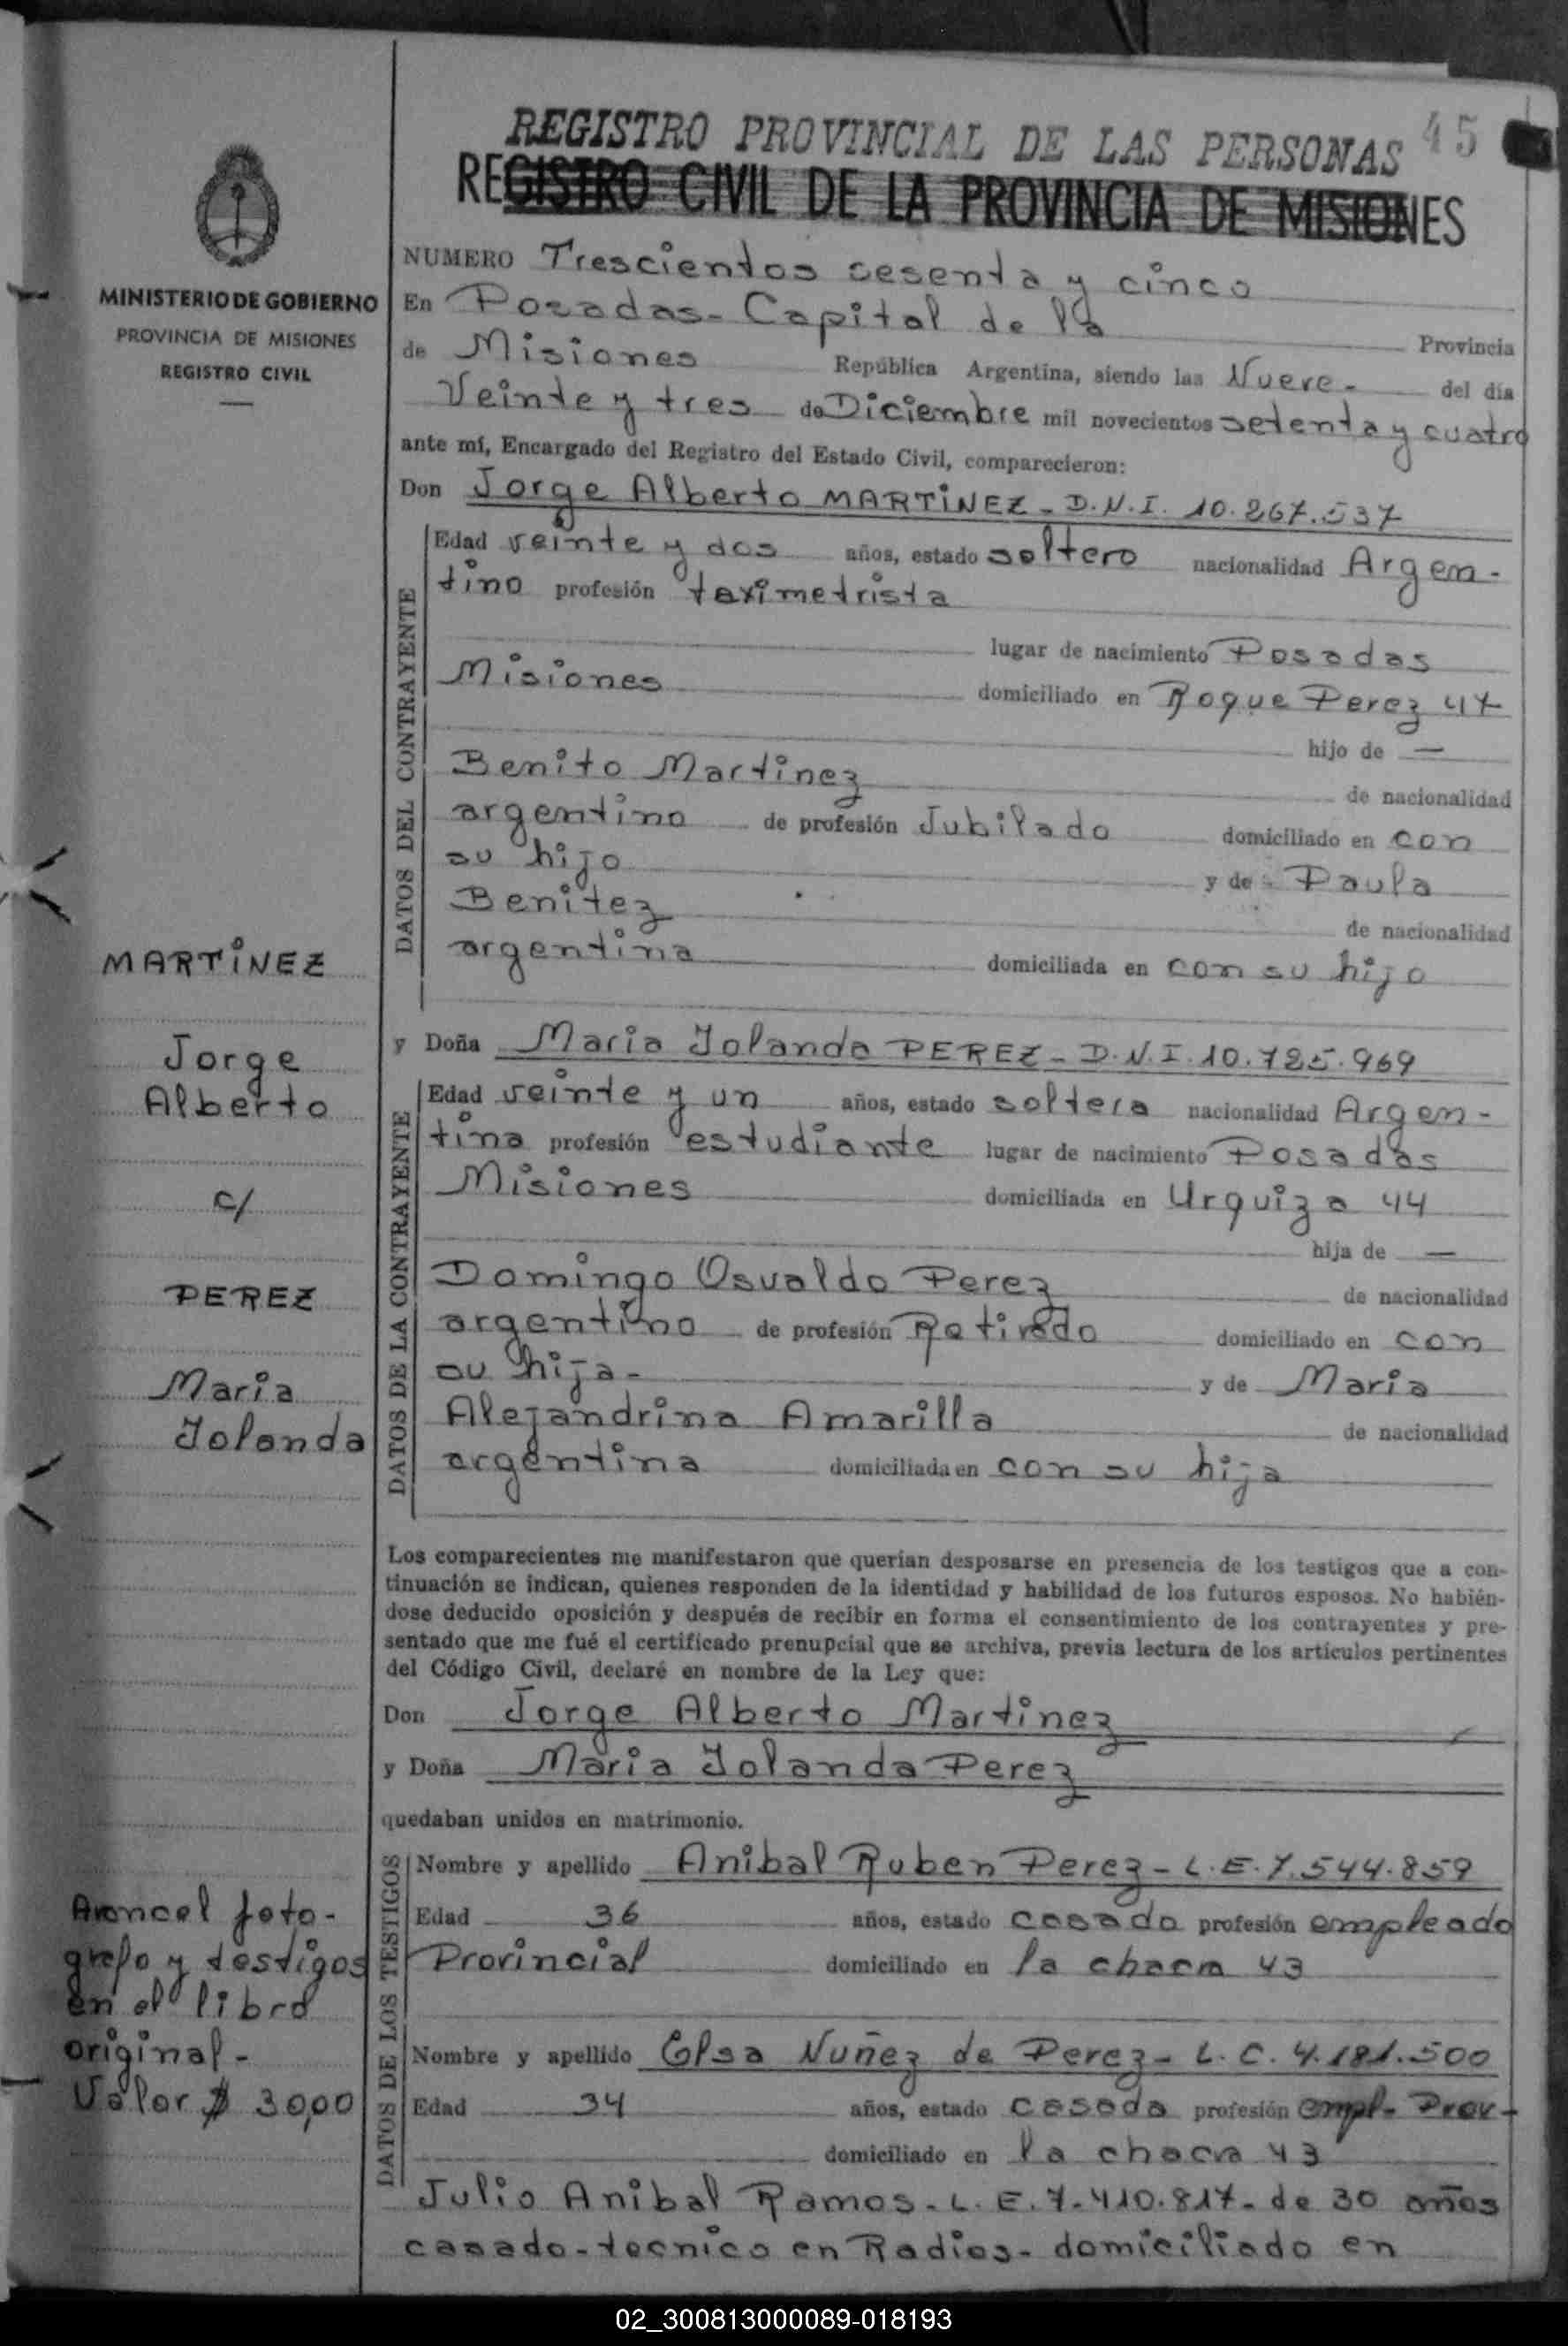 REGISTRO PROVINCIAL DE LAS PERSONAS 45
REGISTRO CIVIL DE LA PROVINCIA DE MISIONES
MINISTERIO DE GOBIERNO
PROVINCIA DE MISIONES
REGISTRO CIVIL
NUMERO Trescientos sesenta y cinco
En Posadas - Capital de la Provincia
de Misiones República Argentina, siendo las Nueve - del día
Veinte y tres de Diciembre mil novecientos setenta y cuatro
ante mí, Encargado del Registro del Estado Civil, comparecieron:
Don Jorge Alberto MARTINEZ - D.N.I. 10.267.537
DATOS DEL CONTRAYENTE
Edad veinte y dos años, estado soltero nacionalidad Argen-
tino profesión taximetrista
lugar de nacimiento Posadas
Misiones domiciliado en Roque Perez 47
hijo de —
Benito Martinez de nacionalidad
argentino de profesión Jubilado domiciliado en con
su hijo y de Paula
Benitez de nacionalidad
argentina domiciliada en con su hijo
y Doña Maria Iolanda PEREZ - D.N.I. 10.725.969
DATOS DE LA CONTRAYENTE
Edad veinte y un años, estado soltera nacionalidad Argen-
tina profesión estudiante lugar de nacimiento Posadas
Misiones domiciliada en Urquiza 44
hija de —
Domingo Osvaldo Perez de nacionalidad
argentino de profesión Retirado domiciliado en con
su hija - y de Maria
Alejandrina Amarilla de nacionalidad
argentina domiciliada en con su hija
MARTINEZ
Jorge
Alberto
c/
PEREZ
Maria
Iolanda
Los comparecientes me manifestaron que querían desposarse en presencia de los testigos que a con-
tinuación se indican, quienes responden de la identidad y habilidad de los futuros esposos. No habién-
dose deducido oposición y después de recibir en forma el consentimiento de los contrayentes y pre-
sentado que me fué el certificado prenupcial que se archiva, previa lectura de los artículos pertinentes
del Código Civil, declaré en nombre de la Ley que:
Don Jorge Alberto Martinez
y Doña Maria Iolanda Perez
quedaban unidos en matrimonio.
DATOS DE LOS TESTIGOS
Nombre y apellido Anibal Ruben Perez - L.E. 7.544.859
Edad 36 años, estado casado profesión empleado
Provincial domiciliado en la chacra 43
Nombre y apellido Elsa Nuñez de Perez - L.C. 4.181.500
Edad 34 años, estado casada profesión empl - Prov -
domiciliado en la chacra 43
Julio Anibal Ramos - L.E. 7.410.817 - de 30 años
casado - tecnico en Radios - domiciliado en
Arancel foto-
grafo y testigos
en el libro
original -
Valor $ 30,00
02_300813000089-018193